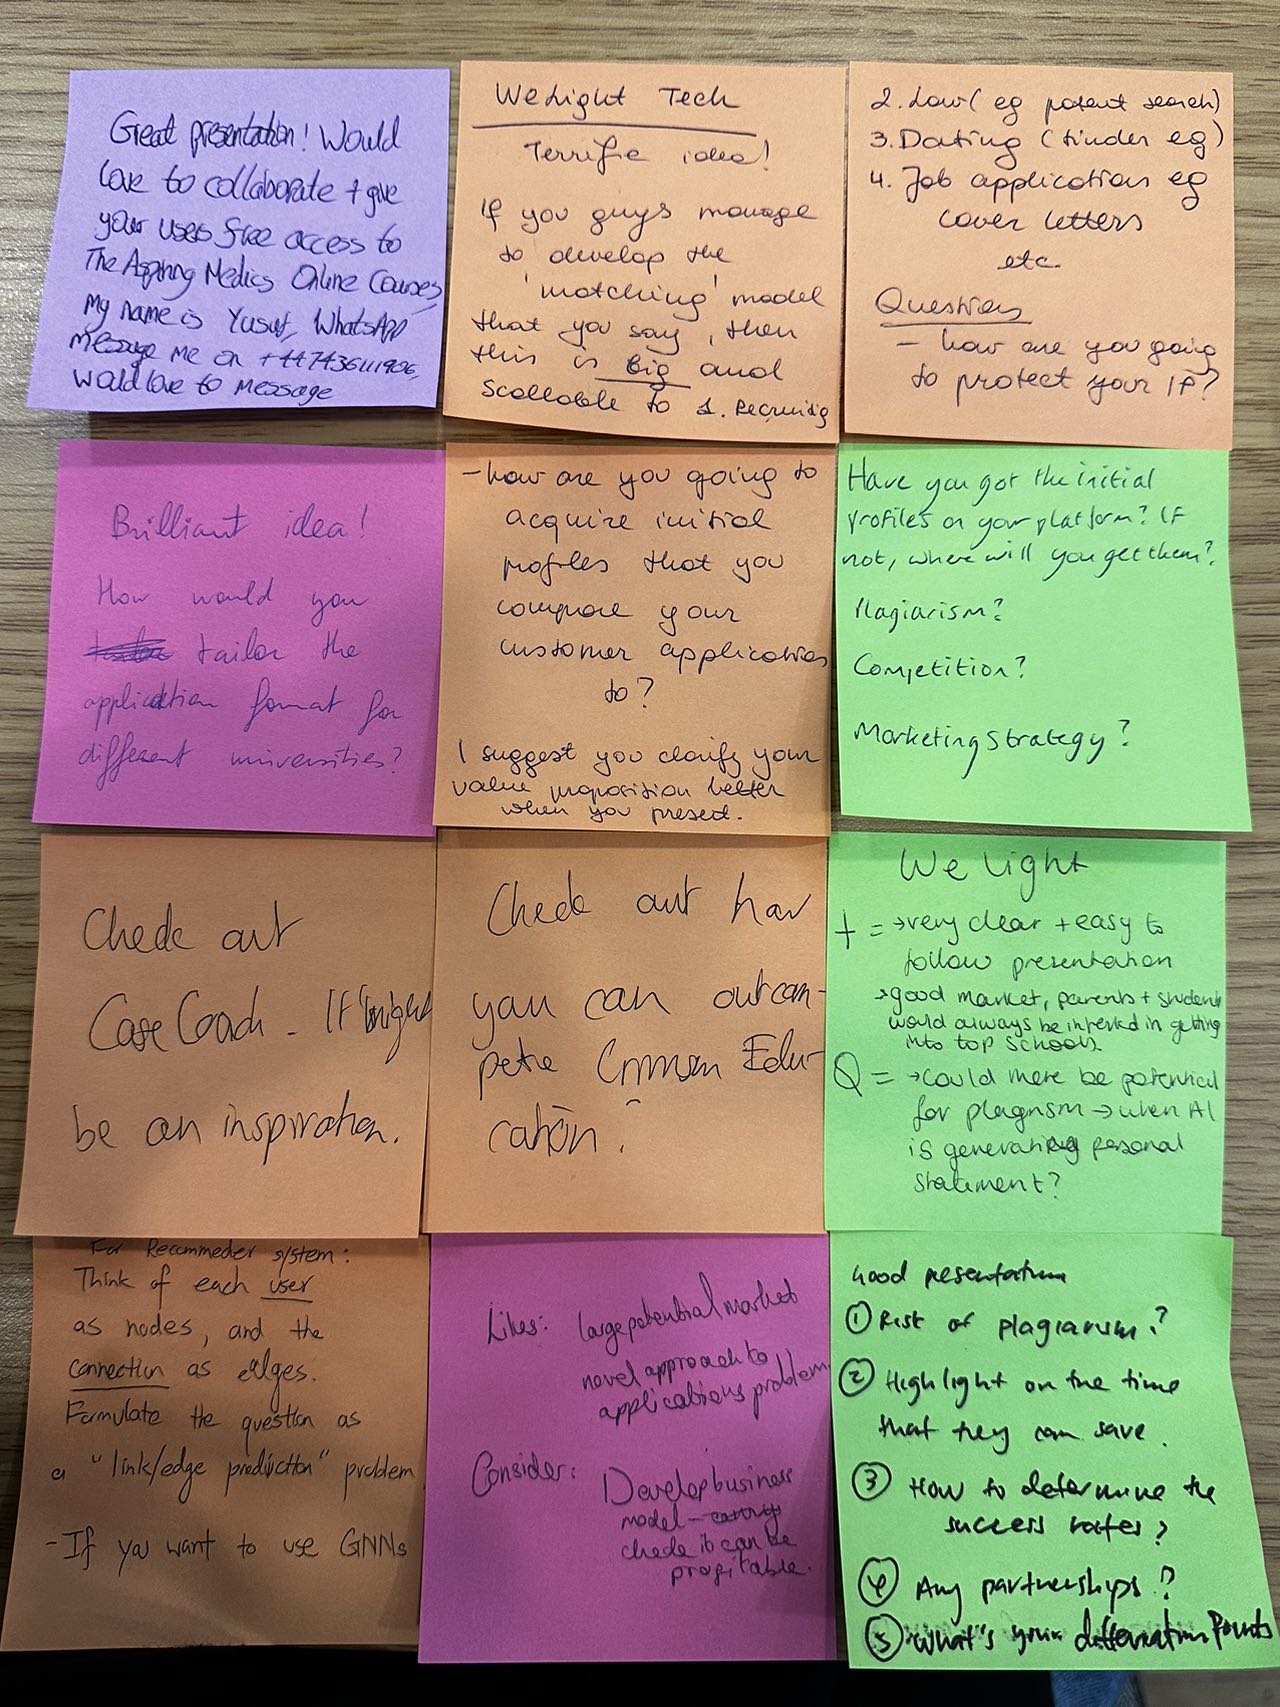 Great presentation! Would
love to collaborate + give
your users free access to
The Aspiring Medics Online Courses,
My name is Yusuf, WhatsApp
message me on +447436111906,
would love to message
WeLight Tech
Terrific idea!
If you guys manage
to develop the
'matching' model
that you say, then
this is big and
scallable to 1. Recruiting
2. Law (eg patent search)
3. Dating (tinder eg)
4. Job applications eg
cover letters
etc.
Questions
- how are you going
to protect your IP?
Brilliant idea!
How would you
tailor the
application format for
different universities?
- how are you going to
acquire initial
profiles that you
compare your
customer applications
to?
I suggest you clarify your
value proposition better
when you present.
Have you got the initial
profiles on your platform? If
not, where will you get them?
Plagiarism?
Competition?
Marketing Strategy?
Check out
CaseCoach - It might
be an inspiration.
Check out how
you can outcom-
pete Crimson Edu-
cation.
We Light
+ = → very clear + easy to
follow presentation
→ good market, parents + students
would always be intrested in getting
into top schools.
Q = → could there be potential
for plagrism → when AI
is generating personal
statement?
For Recommeder system:
Think of each user
as nodes, and the
connection as edges.
Formulate the question as
a "link/edge prediction" problem
- If you want to use GNNs
Likes: large potential market
novel approach to
applications problem
Consider: Develop business
model -
check it can be
profitable.
Good presentation
① Risk of plagiarism?
② Highlight on the time
that they can save.
③ How to determine the
success rates?
④ Any partnerships?
⑤ What's your differentiation Points